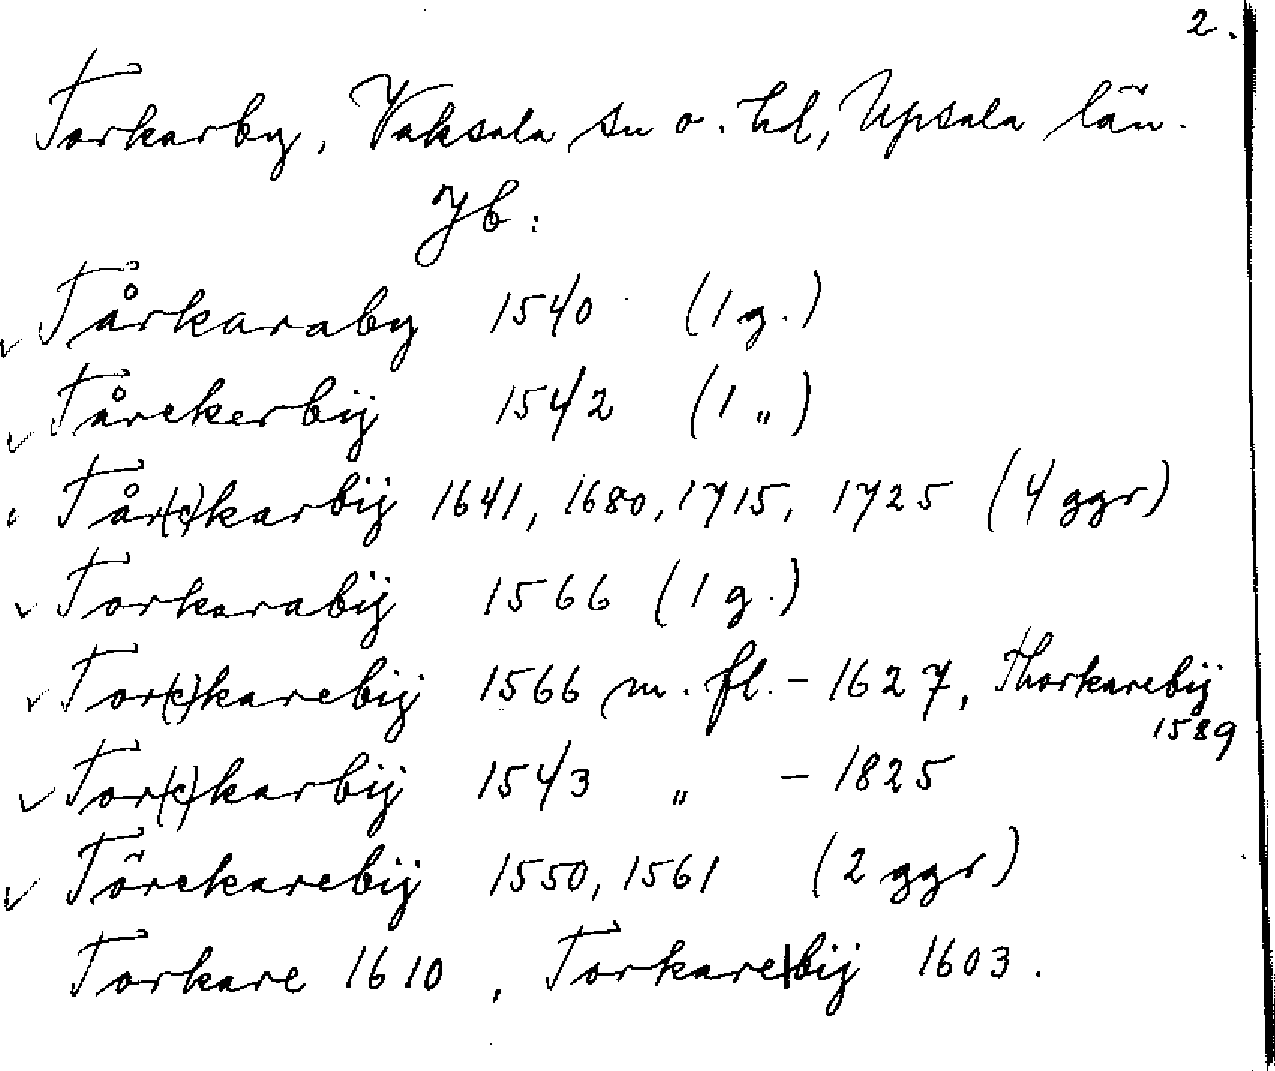 2.
Torkarby, Vaksala sn o. hd, Upsala län.
Jb:
Tårkaraby 1540 (1 g.)
Tårckerbÿ 1542 (1 „)
Tår(c)karbÿ 1641, 1680, 1715, 1725 (4 ggr)
Torkarabÿ 1566 (1 g.)
Tor(c)karebÿ 1566 m. fl. - 1627, Thorkarebÿ
1589
Tor(c)karbÿ 1543 „ - 1825
Törckarebÿ 1550, 1561 (2 ggr)
Torkare 1610, Torkare|bÿ 1603.